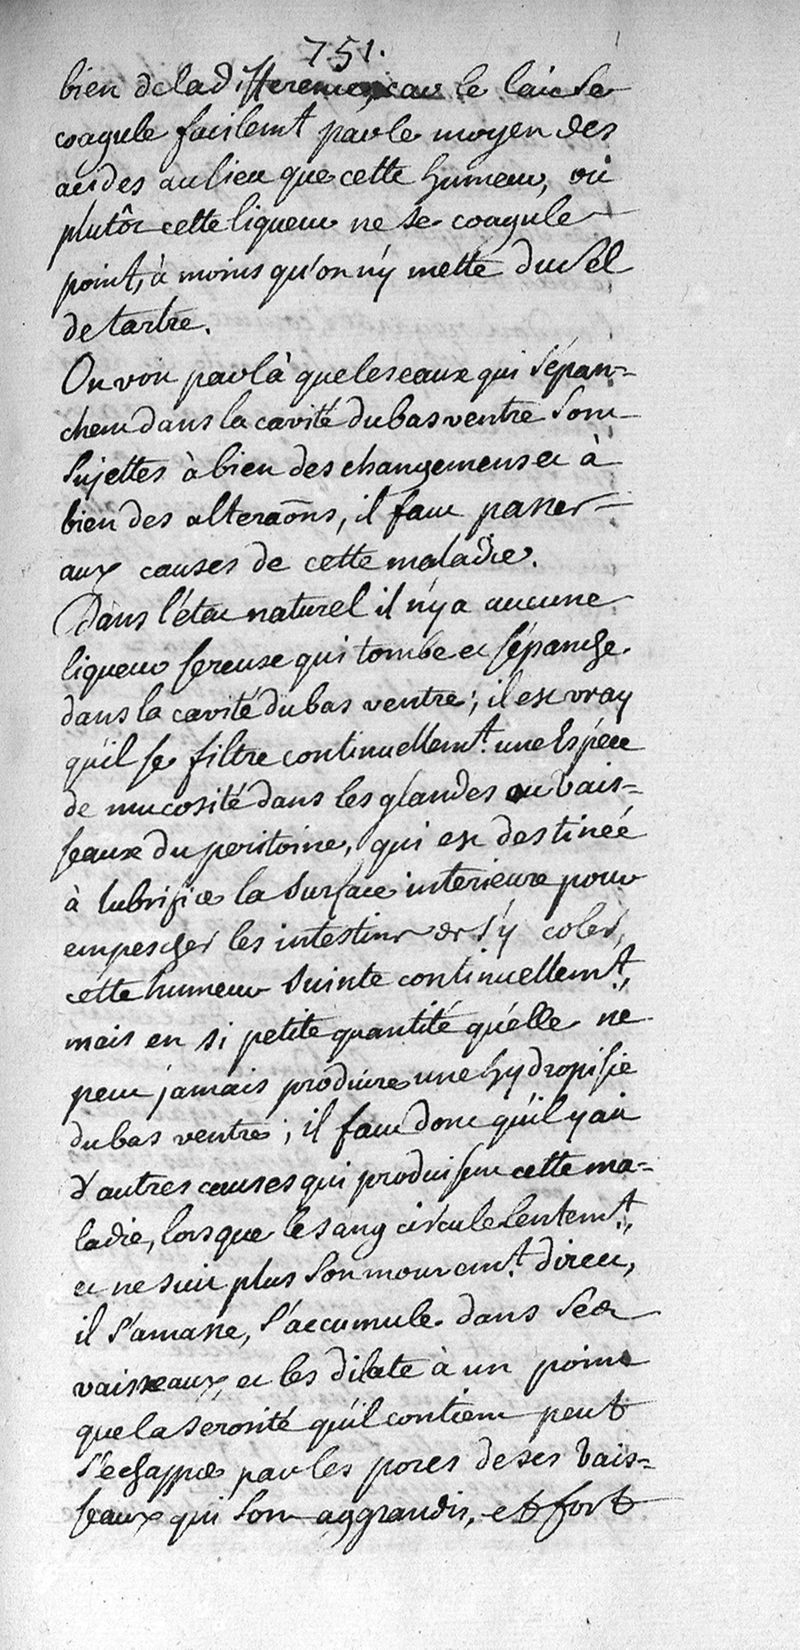 751.
bien de la difference, car le lait se
coagule facilem.t par le moyen des
acides au lieu que cette humeur, où
plutôt cette liqueur ne se coagule
point, à moins qu'on n'y mette du sel
de tartre.
On voit par là que les eaux qui s'épan=
chent dans la cavité du bas ventre sont
sujettes à bien des changemens et à
bien des alteraõns, il faut passer
aux causes de cette maladie.
Dans l'état naturel il n'y a aucune
liqueur sereuse qui tombe et s'épanche
dans la cavité du bas ventre; il est vray
qu'il se filtre continuellem.t une espéce
de mucosité dans les glandes ou vais=
seaux du peritoine, qui est destinée
à lubrifier la surface interieure pour
empescher les intestins de s'y coler,
cette humeur suinte continuellem.t,
mais en si petite quantité qu'elle ne
peut jamais produire une hydropisie
du bas ventre; il faut donc qu'il y ait
d'autres causes qui produisent cette ma=
ladie, lorsque le sang circule lentem.t,
et ne suit plus son mouvem.t direct,
il s'amasse, s'accumule dans ses
vaisseaux, et les dilate à un point
que la serosité qu'il contient peut
s'echapper par les pores de ses vais=
seaux qui sont aggrandis, et fort